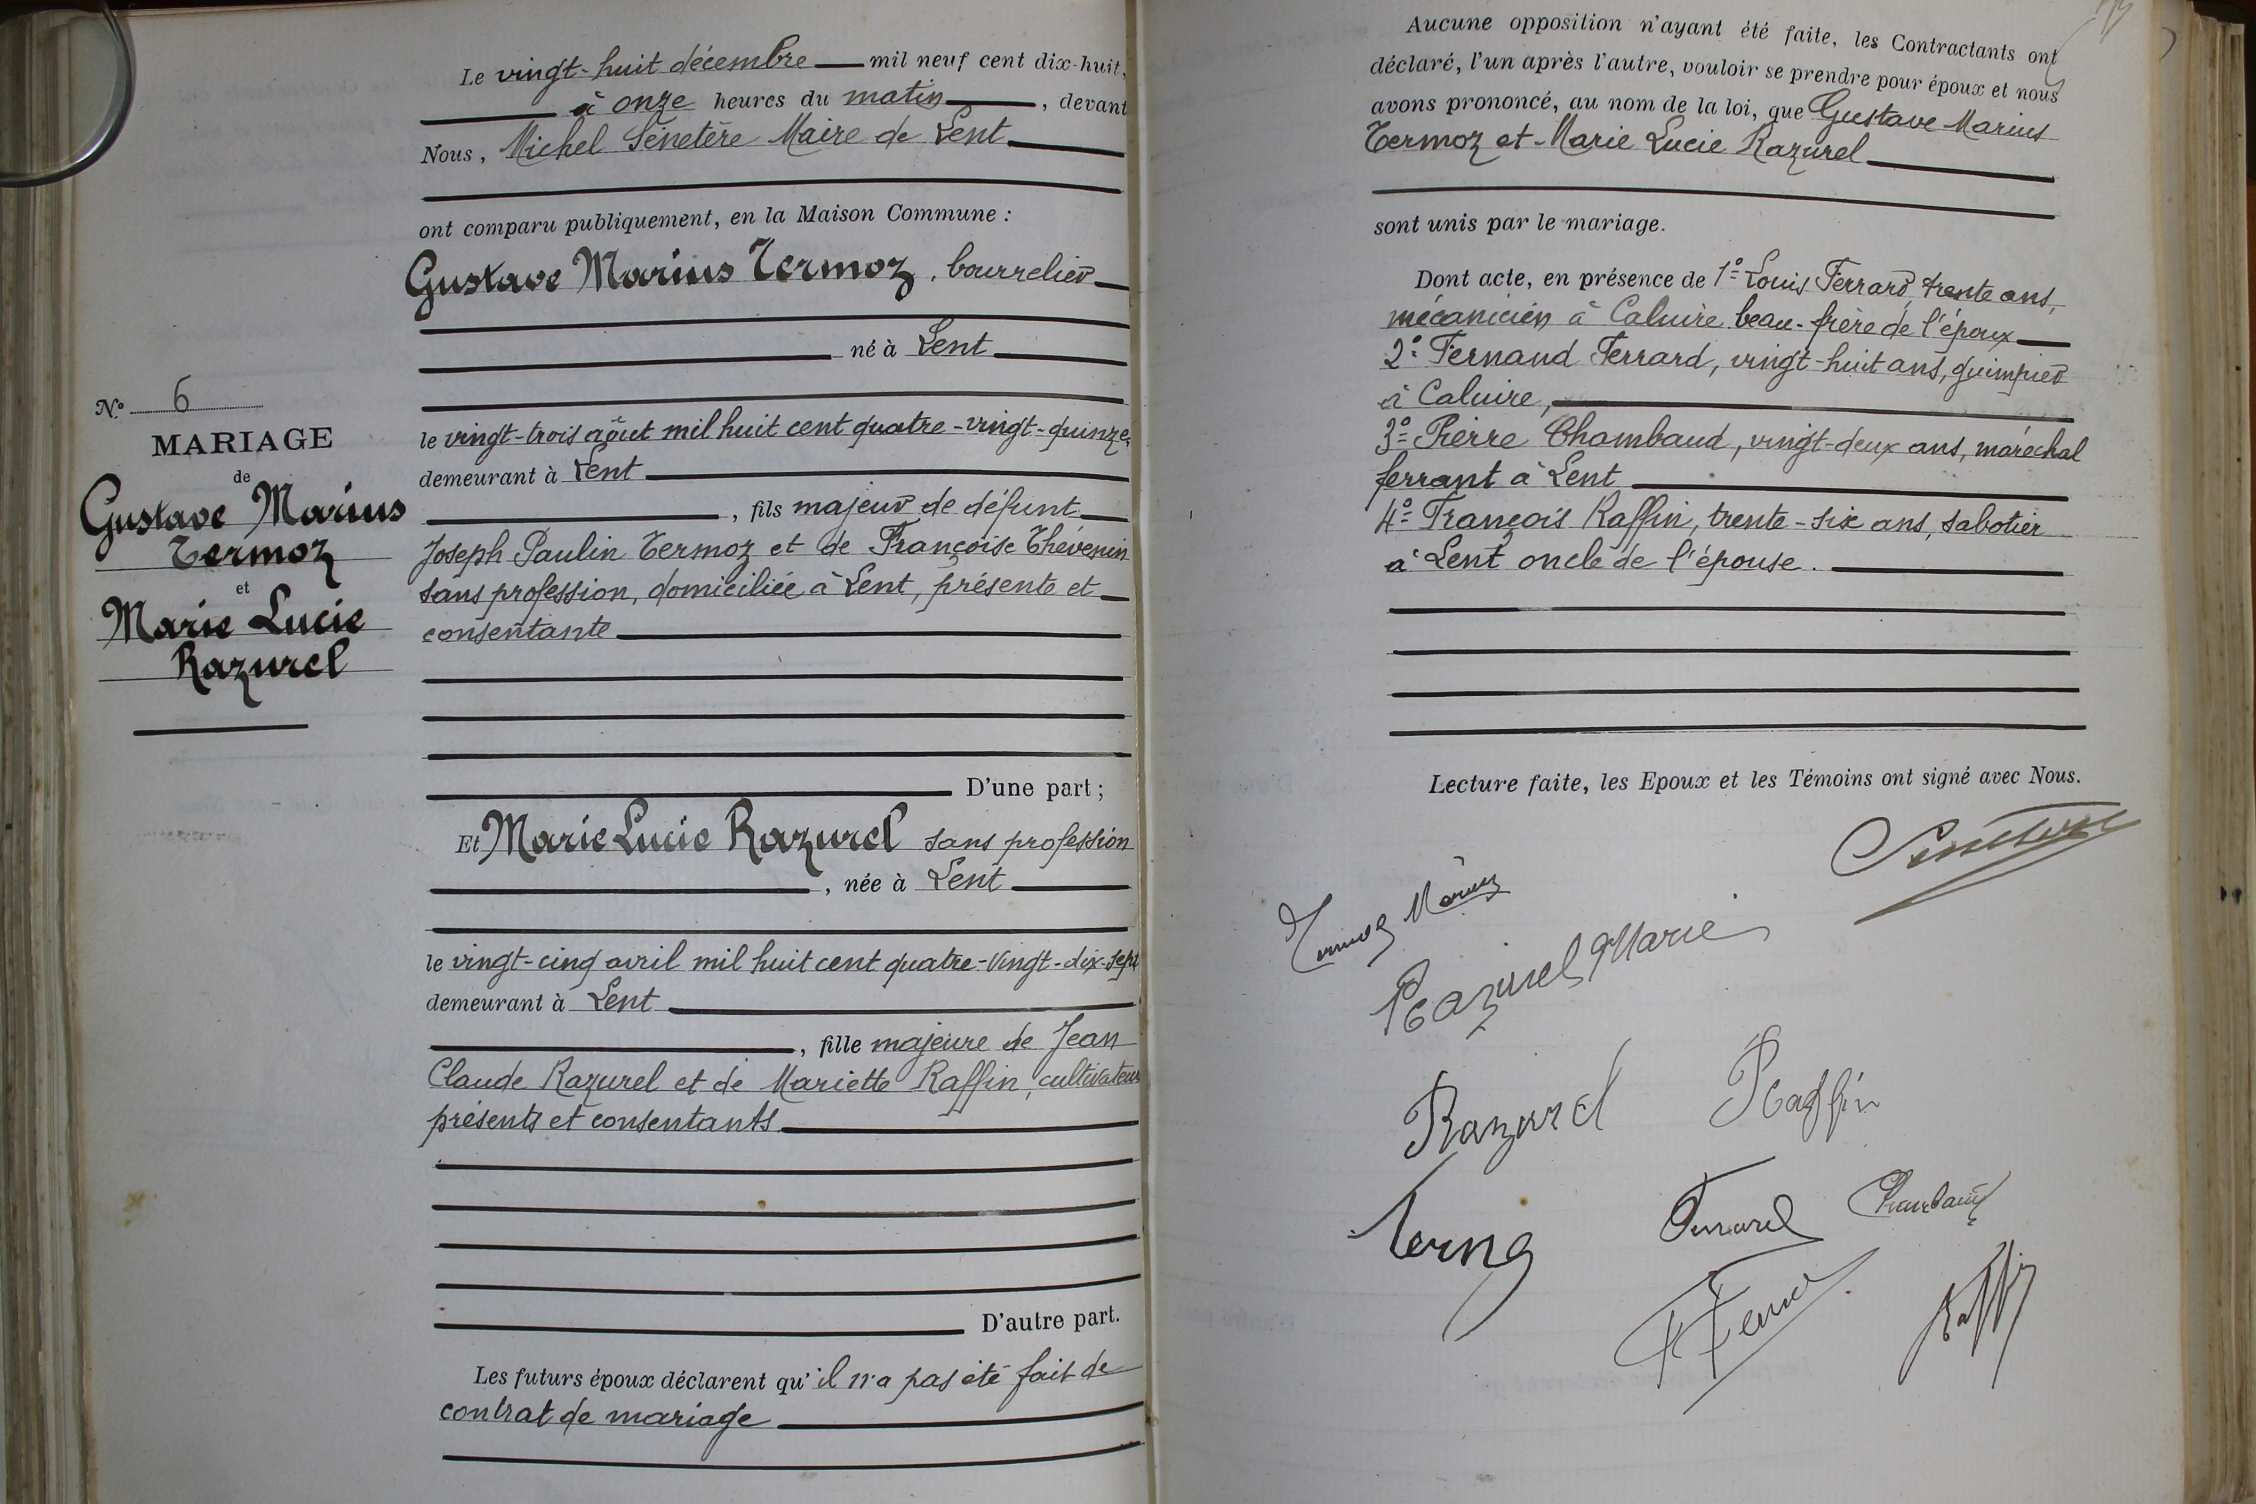 Le vingt-huit décembre mil neuf cent dix-huit,
à onze heures du matin, devant
Nous, Michel Sénetère Maire de Lent
ont comparu publiquement, en la Maison Commune :
Gustave Marius Termoz, bourrelier
né à Lent
le vingt-trois août mil huit cent quatre-vingt-quinze,
demeurant à Lent
, fils majeur de défunt
Joseph Paulin Termoz et de Françoise Thévenin
sans profession, domiciliée à Lent, présente et
consentante
D'une part ;
Et Marie Lucie Razurel sans profession
, née à Lent
le vingt-cinq avril mil huit cent quatre-vingt-dix-sept
demeurant à Lent
, fille majeure de Jean
Claude Razurel et de Mariette Raffin, cultivateurs
présents et consentants
D'autre part.
Les futurs époux déclarent qu'il n'a pas été fait de
contrat de mariage
N.° 6
MARIAGE
de
Gustave Marius
Termoz
et
Marie Lucie
Razurel
Aucune opposition n'ayant été faite, les Contractants ont
déclaré, l'un après l'autre, vouloir se prendre pour époux et nous
avons prononcé, au nom de la loi, que Gustave Marius
Termoz et Marie Lucie Razurel
sont unis par le mariage.
Dont acte, en présence de 1° Louis Ferrard, trente ans,
mécanicien à Caluire beau-frère de l'époux
2° Fernand Ferrard, vingt-huit ans, guimpier
à Caluire,
3° Pierre Chambaud, vingt-deux ans, maréchal
ferrant à Lent
4° François Raffin, trente-six ans, sabotier
à Lent oncle de l'épouse.
Lecture faite, les Epoux et les Témoins ont signé avec Nous.
Senetere
Termoz Marius
Razurel Marie
Razurel Raffin
Ferrard Chambaud
Raffin